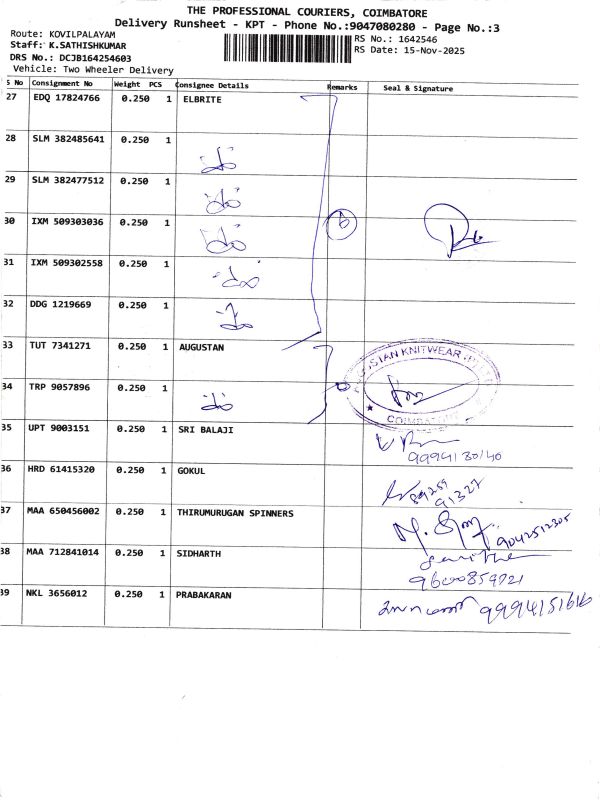 THE PROFESSIONAL COURIERS, COIMBATORE
Delivery Runsheet - KPT - Phone No.:9047080280 - Page No.:3
Route: KOVILPALAYAM
RS No.: 1642546
Staff: K.SATHISHKUMAR
RS Date: 15-Nov-2025
DRS No.: DCJB164254603
Vehicle: Two Wheeler Delivery
S No Consignment No Weight PCS Consignee Details Remarks Seal & Signature
27 EDQ 17824766 0.250 1 ELBRITE
28 SLM 382485641 0.250 1
29 SLM 382477512 0.250 1
30 IXM 509303036 0.250 1 6
31 IXM 509302558 0.250 1
32 DDG 1219669 0.250 1
33 TUT 7341271 0.250 1 AUGUSTAN
KNITWEAR
34 TRP 9057896 0.250 1
COIMBATORE
35 UPT 9003151 0.250 1 SRI BALAJI
9994130140
36 HRD 61415320 0.250 1 GOKUL
89259
91327
37 MAA 650456002 0.250 1 THIRUMURUGAN SPINNERS
9042512305
38 MAA 712841014 0.250 1 SIDHARTH
9600859721
39 NKL 3656012 0.250 1 PRABAKARAN
9994151616